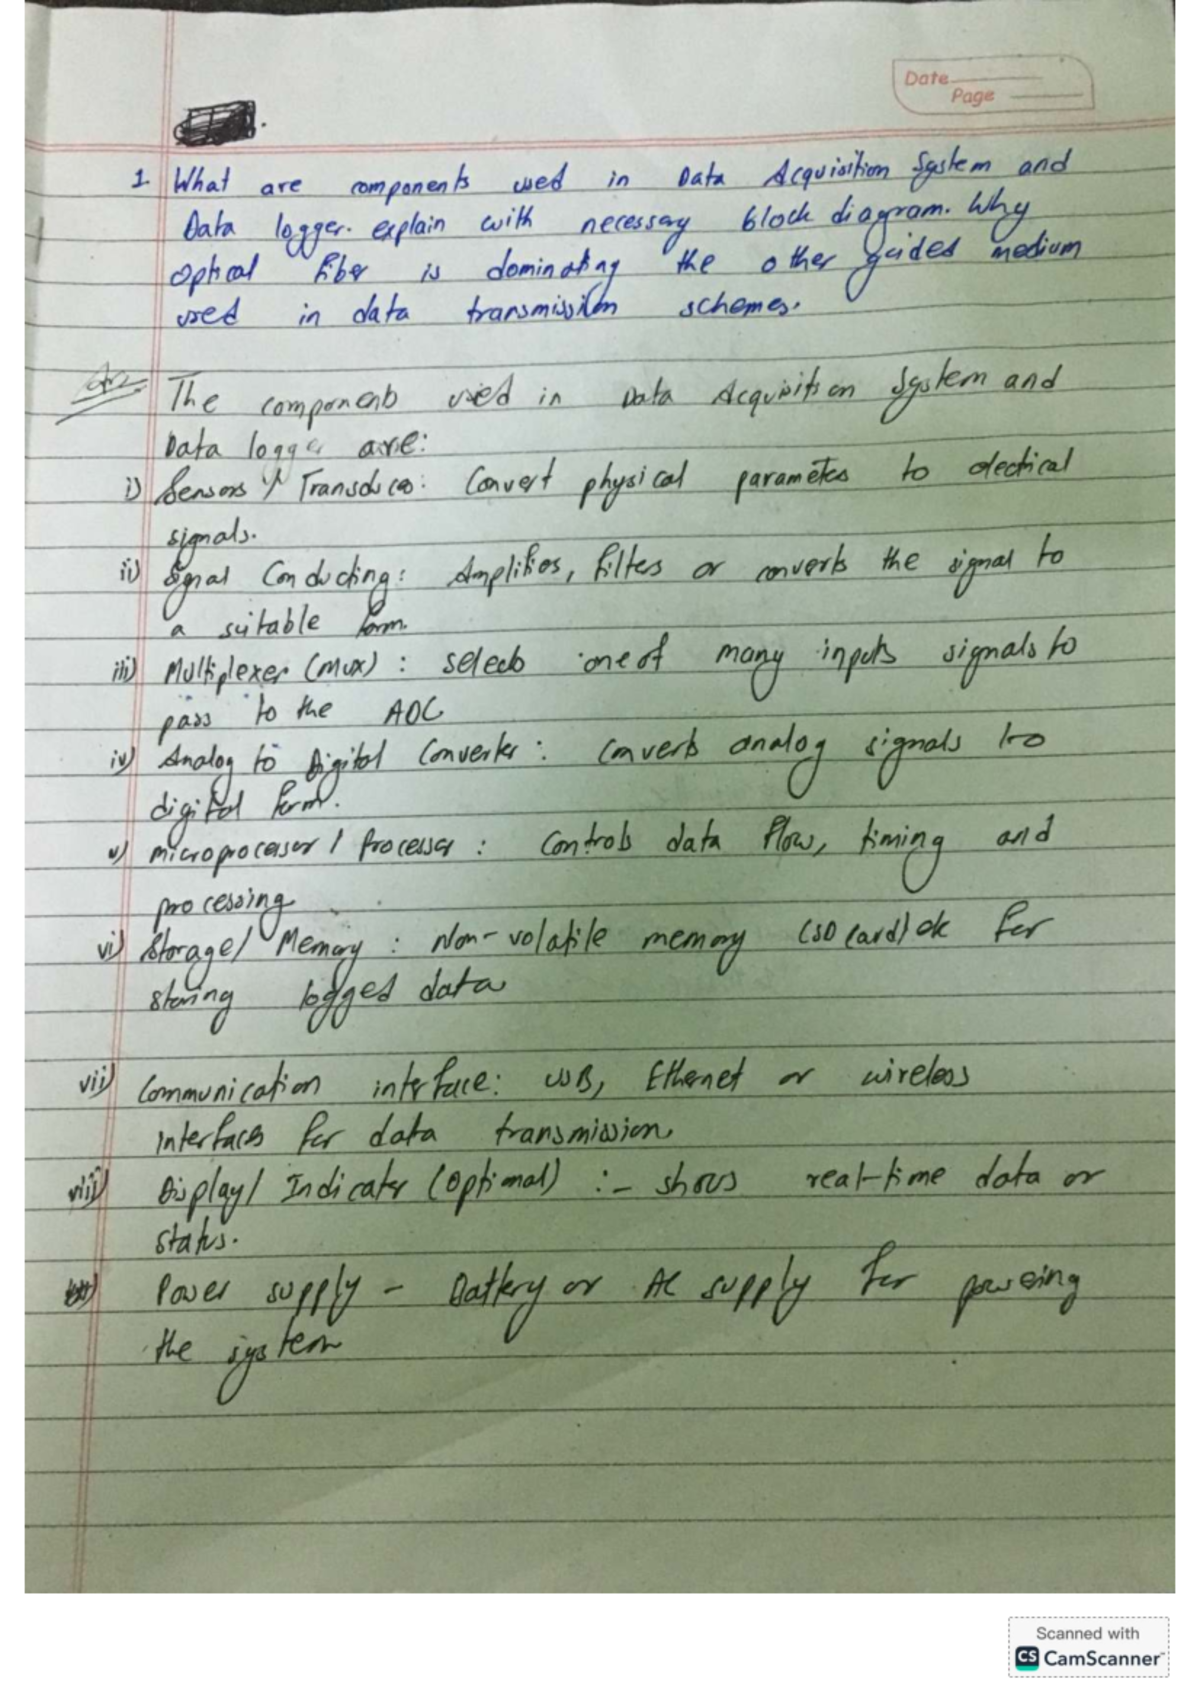 Date
Page
1. What are components used in Data Acquisition System and
Data logger. explain with necessary block diagram. Why
optical fiber is dominating the other guided medium
used in data transmission schemes.
Ans The components used in Data Acquisition System and
Data logger are:
i) Sensors / Transducers: Convert physical parameters to electical
signals.
ii) Signal Conducting: Amplifies, filters or converts the signal to
a suitable form.
iii) Multiplexer (MUX) : selects one of many inputs signals to
pass to the ADC
iv) Analog to Digital Converter : Converts analog signals to
digital form.
v) microprocessor / Processor : Controls data flow, timing and
processing
vi) Storage/ Memory : Non-volatile memory (SD Card) for
storing logged data
vii) Communication interface: USB, Ethernet or wireless
interfaces for data transmission.
viii) Display/ Indicator (optimal) :- shows real-time data or
status.
Power supply - Battery or AC supply for powering
the system
Scanned with
CS CamScanner